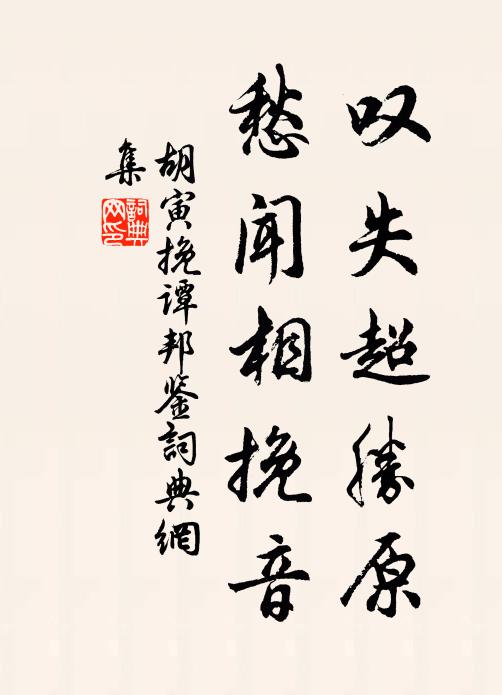 叹失超胜原
愁闻相挽音
胡寅挽谭邦鉴詞典網
集
詞典
网印